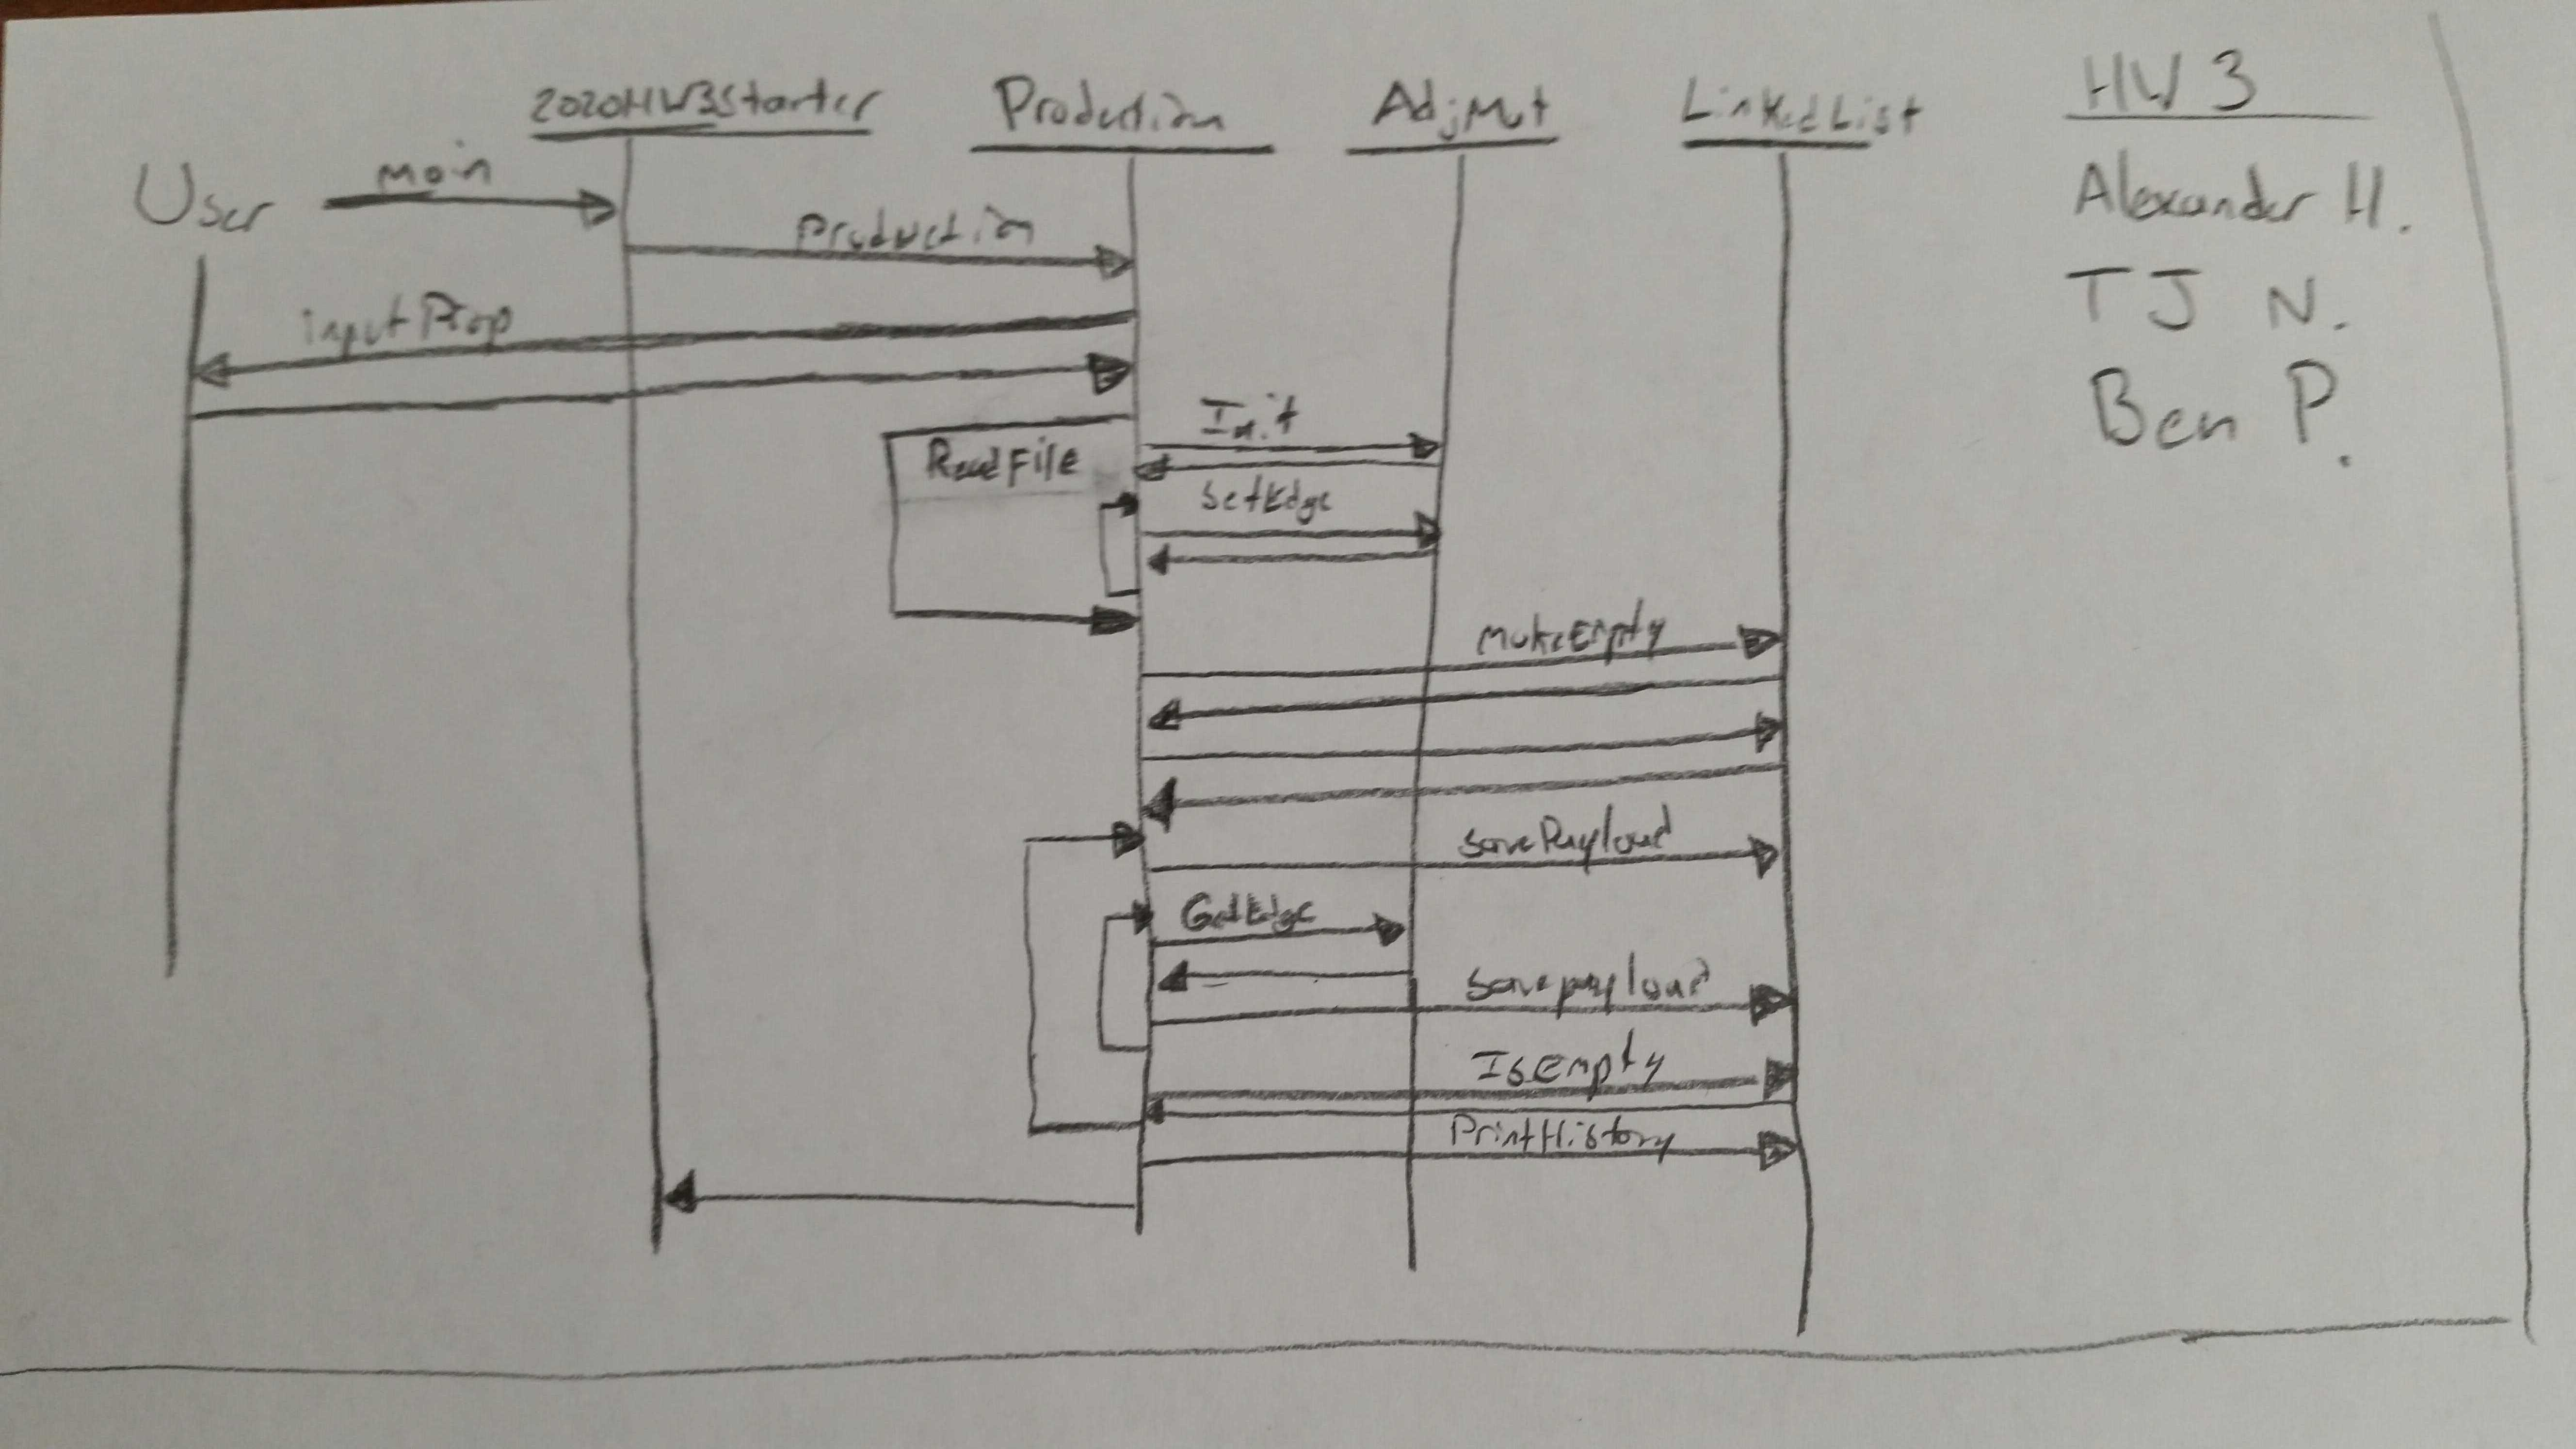 2020HW3Starter
Production
AdjMat
LinkedList
HW 3
Alexander H.
TJ N.
Ben P.
User
main
production
inputProp
Init
ReadFile
SetEdge
MakeEmpty
savePayload
GetEdge
savepayload
IsEmpty
PrintHistory